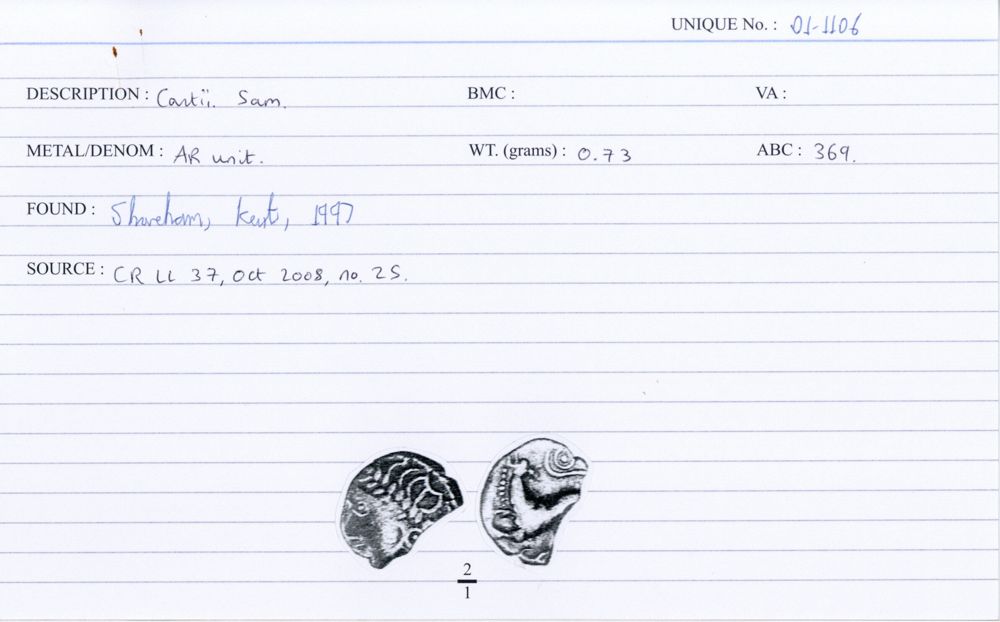 UNIQUE No. : 01-1106
DESCRIPTION : Cantii. Sam. BMC : VA :
METAL/DENOM : AR unit. WT. (grams) : 0.73 ABC : 369.
FOUND : Shoreham, Kent, 1997
SOURCE : CR LL 37, Oct 2008, no. 25.
2
1